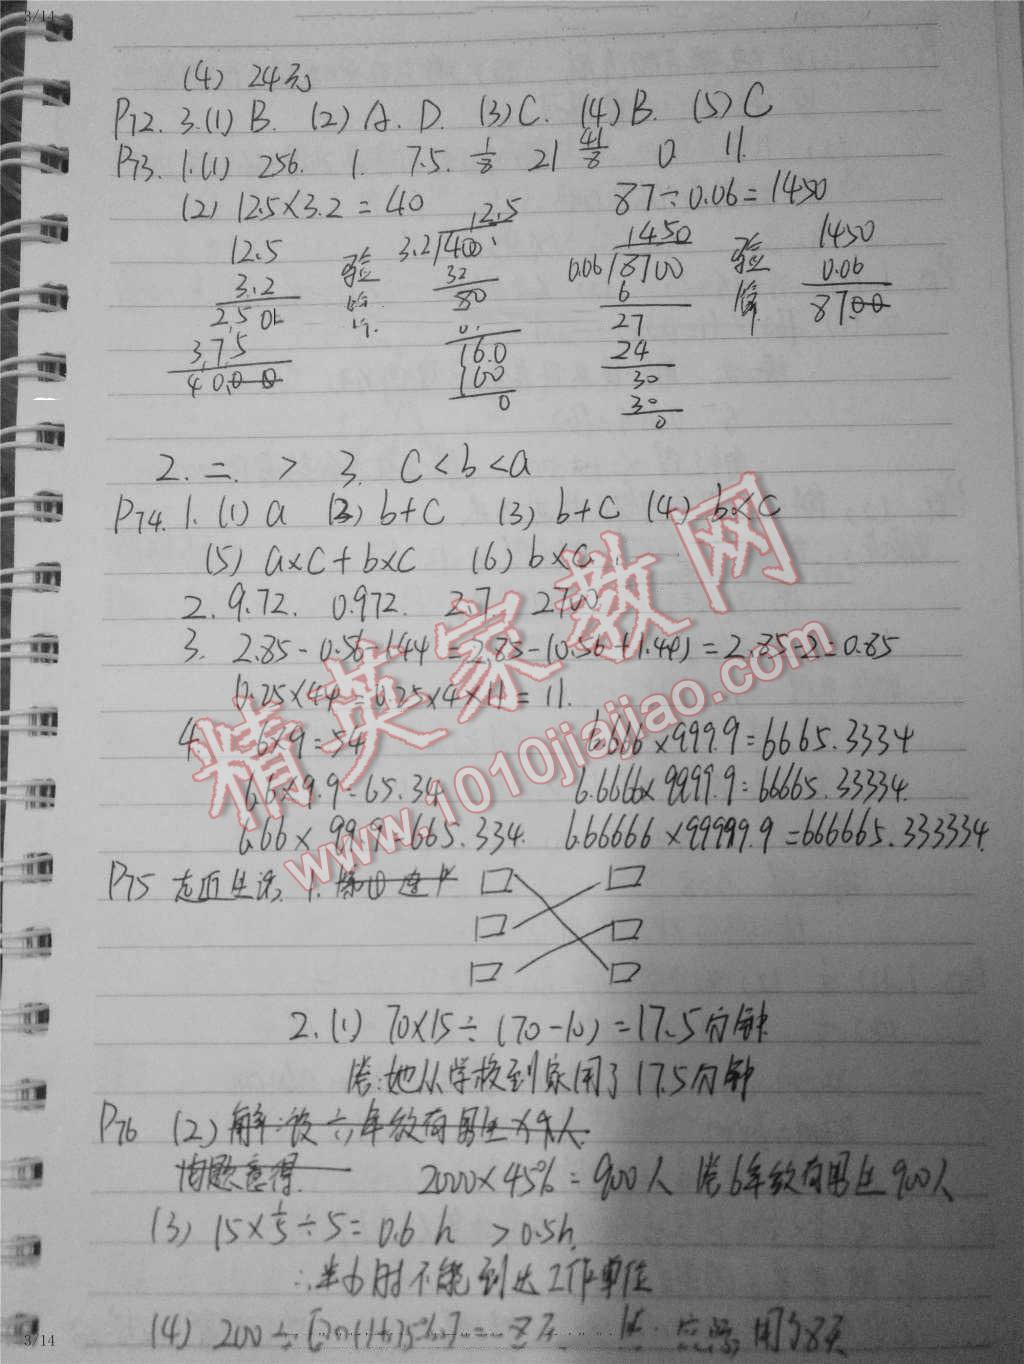 3/14
(4) 24元
P72. 3.(1) B. (2) A. D. (3) C. (4) B. (5) C
P73. 1.(1) 256. 1. 7.5. 1/8 21 41/8 0 11.
(2) 12.5×3.2=40 87÷0.06=1450
12.5 验 3.2 400 12.5 1450 验 1450
3.2 算 32 0.06 8700 算 0.06
2,50 80 6 8700
3,75 16.0 27
40.00 160 24
0 30
30
0
2. =. > 3. c<b<a
P74. 1. (1) a (2) b+c (3) b+c (4) b×c
(5) a×c+b×c (6) b×c
2. 9.72. 0.972. 2.7 2700
3. 2.85-0.56-1.44=2.85-(0.56+1.44)=2.85-2=0.85
0.25×44=0.25×4×11=11.
4. 6×9=54 6.666×999.9=6665.3334
6.6×9.9=65.34 6.6666×9999.9=66665.33334.
6.66×99.9=665.334. 6.66666×99999.9=666665.333334.
P75 走近生活. 1.
2.(1) 70×15÷(70-10)=17.5分钟
答:她从学校到家用了17.5分钟
P76 (2) 解:设六年级有男生x人.
由题意得 2000×45%=900人 答6年级有男生900人
(3) 15×1/5÷5=0.6h >0.5h.
∴半小时不能到达工作单位
(4) 200÷[20(1+25%)]=8天
精英家教网
www.1010jiajiao.com
3/14